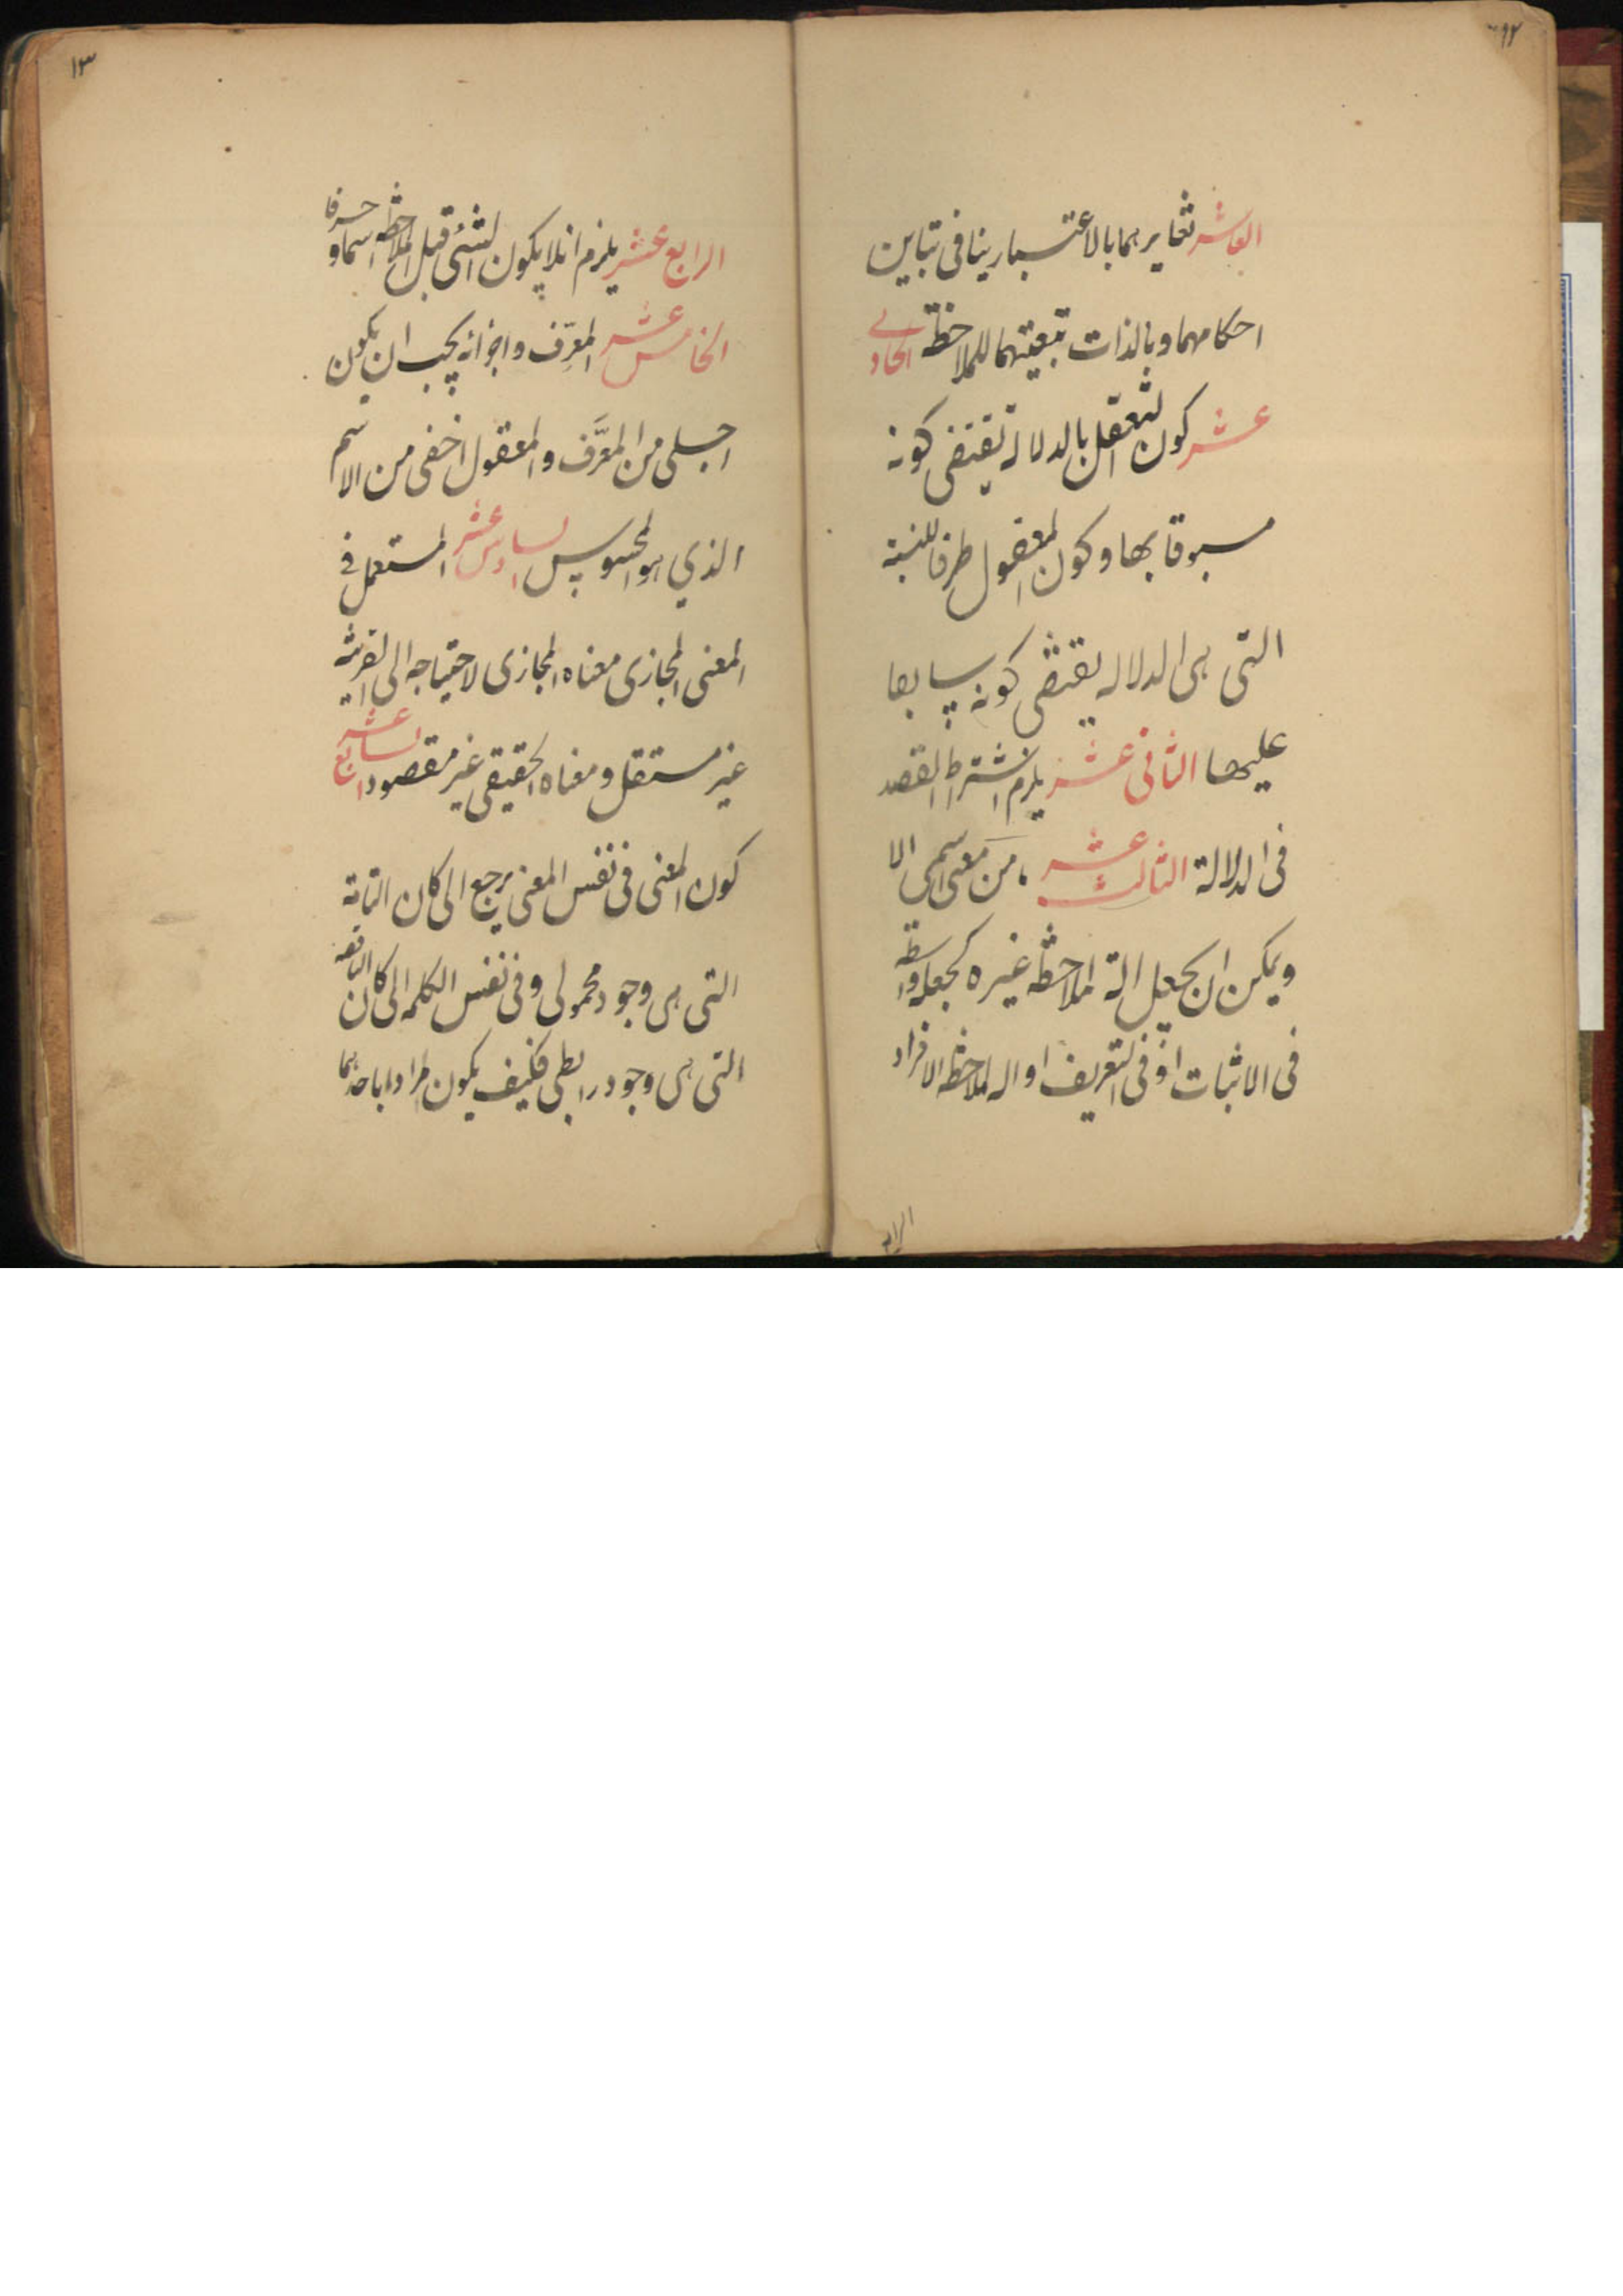 العاشر تغايرهما بالاعتبار ينافى تباين
احكامهما وبالذات تبعيتهما للملاحظة الحادى
عشر كون التعقل بالدلالة يقتضى كونه
مسبوقا بها وكون المعقول طرفا للنسبة
التى هى الدلالة يقتضى كونه سابقا
عليها الثانى عشر يلزم اشتراط القصد
فى الدلالة الثالث عشر ما من معنى اسمى الا
ويمكن ان يجعل الة لملاحظة غيره كجعله واسطة
فى الاثبات او فى التعريف او الة لملاحظة الافراد
١٣
الرابع عشر يلزم ان لا يكون الشئ قبل الملاحظة اسما و حرفا
الخامس عشر المعرِّف واجزائه يجب ان يكون
اجلى من المعرَّف والمعقول اخفى من الاسم
الذي هو المحسوس السادس عشر المستعمل فى
المعنى المجازى معناه المجازى لاحتياجه الى القرينة
غير مستقل ومعناه الحقيقى غير مقصود السابع عشر
كون المعنى فى نفس المعنى يرجع الى كان التامة
التى هى وجود محمولى وفى نفس الكلمة الى كان الناقصة
التى هى وجود رابطى فكيف يكون مرادا باحدهما